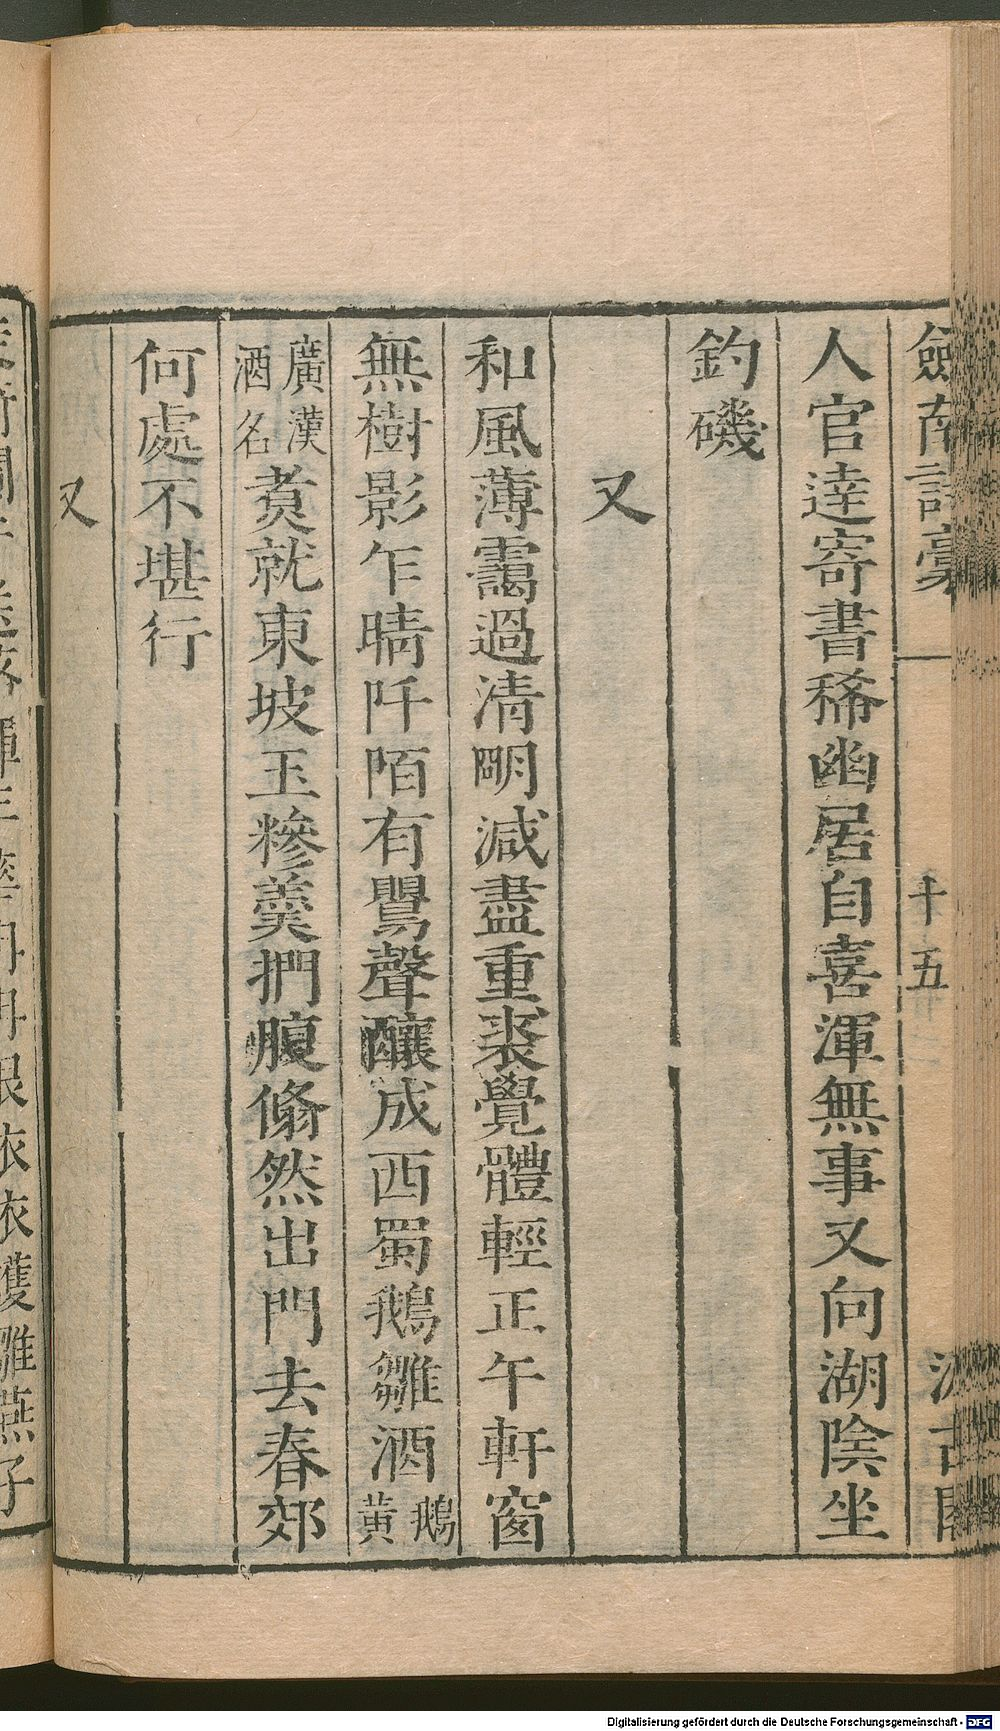 劍南詩稾 十五 汲古閣
人官達寄書稀幽居自喜渾無事又向湖陰坐
釣磯
又
和風薄靄過清明減盡重裘覺體輕正午軒窗
無樹影乍晴阡陌有鸎聲釀成西蜀鵝雛酒鵝黃
廣漢酒名煑就東坡玉糝羹捫腹翛然出門去春郊
何處不堪行
又
落輝 冉冉 依依護雛燕子
Digitalisierung gefördert durch die Deutsche Forschungsgemeinschaft - DFG